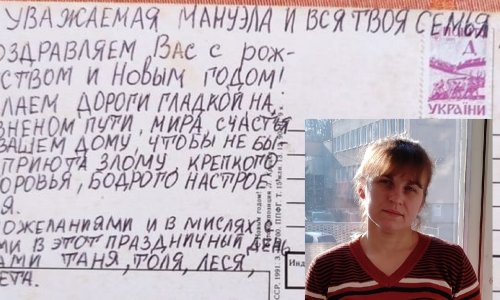 УВАЖАЕМАЯ МАНУЭЛА И ВСЯ ТВОЯ СЕМЬЯ
ОЗДРАВЛЯЕМ ВАС С РОЖ-
СТВОМ И НОВЫМ ГОДОМ!
ЛАЕМ ДОРОГИ ГЛАДКОЙ НА
ЗНЕНОМ ПУТИ, МИРА, СЧАСТЬЯ
ВАШЕМ ДОМУ, ЧТОБЫ НЕ БЫ
ПРИЮТА ЗЛОМУ, КРЕПКОГО
ОРОВЬЯ, БОДРОГО НАСТРОЕ
Я.
ОЖЕЛАНИЯМИ И В МИСЛЯХ
МИ В ЭТОТ ПРАЗДНИЧНЫЙ ДЕНЬ
АМИ ТАНЯ, ТОЛЯ, ЛЕСЯ,
ЕТА.
ПОШТА
Д
УКРАЇНИ
Инд
СССР. 1991.